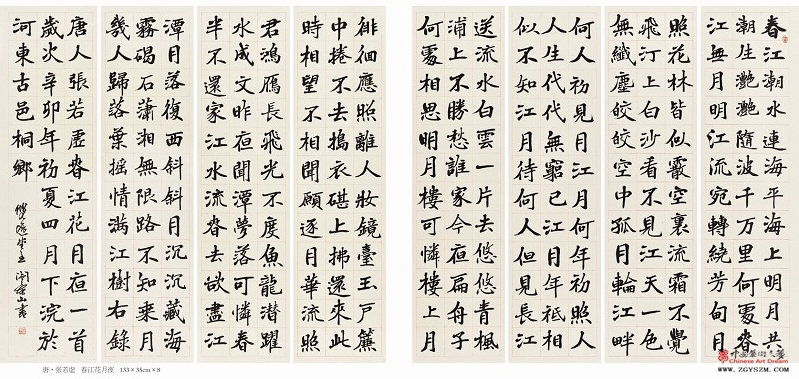 春江潮水連海平海上明月共
潮生艷艷隨波千万里何處春
江無月明江流宛轉繞芳甸月
照花林皆似霰空裏流霜不覺
飛汀上白沙看不見江天一色
無纖塵皎皎空中孤月輪江畔
何人初見月江月何年初照人
人生代代無窮已江月年祗相
似不知江月待何人但見長江
送流水白雲一片去悠悠青楓
浦上不勝愁誰家今夜扁舟子
何處相思明月樓可憐樓上月
徘徊應照離人妝鏡臺玉戶簾
中捲不去搗衣碪上拂還來此
時相望不相聞願逐月華流照
君鴻鴈長飛光不度魚龍潛躍
水成文昨夜聞潭夢落可憐春
半不還家江水流春去欲盡江
潭月落復西斜斜月沉沉藏海
霧碣石瀟湘無限路不知乘月
幾人歸落葉搖情滿江樹右錄
唐人張若虛春江花月夜一首
歲次辛卯年初夏四月下浣於
河東古邑桐鄉
唐·張若虛 春江花月夜 133×35cm×8
Chinese Art Dream
WWW.ZGYSZM.COM